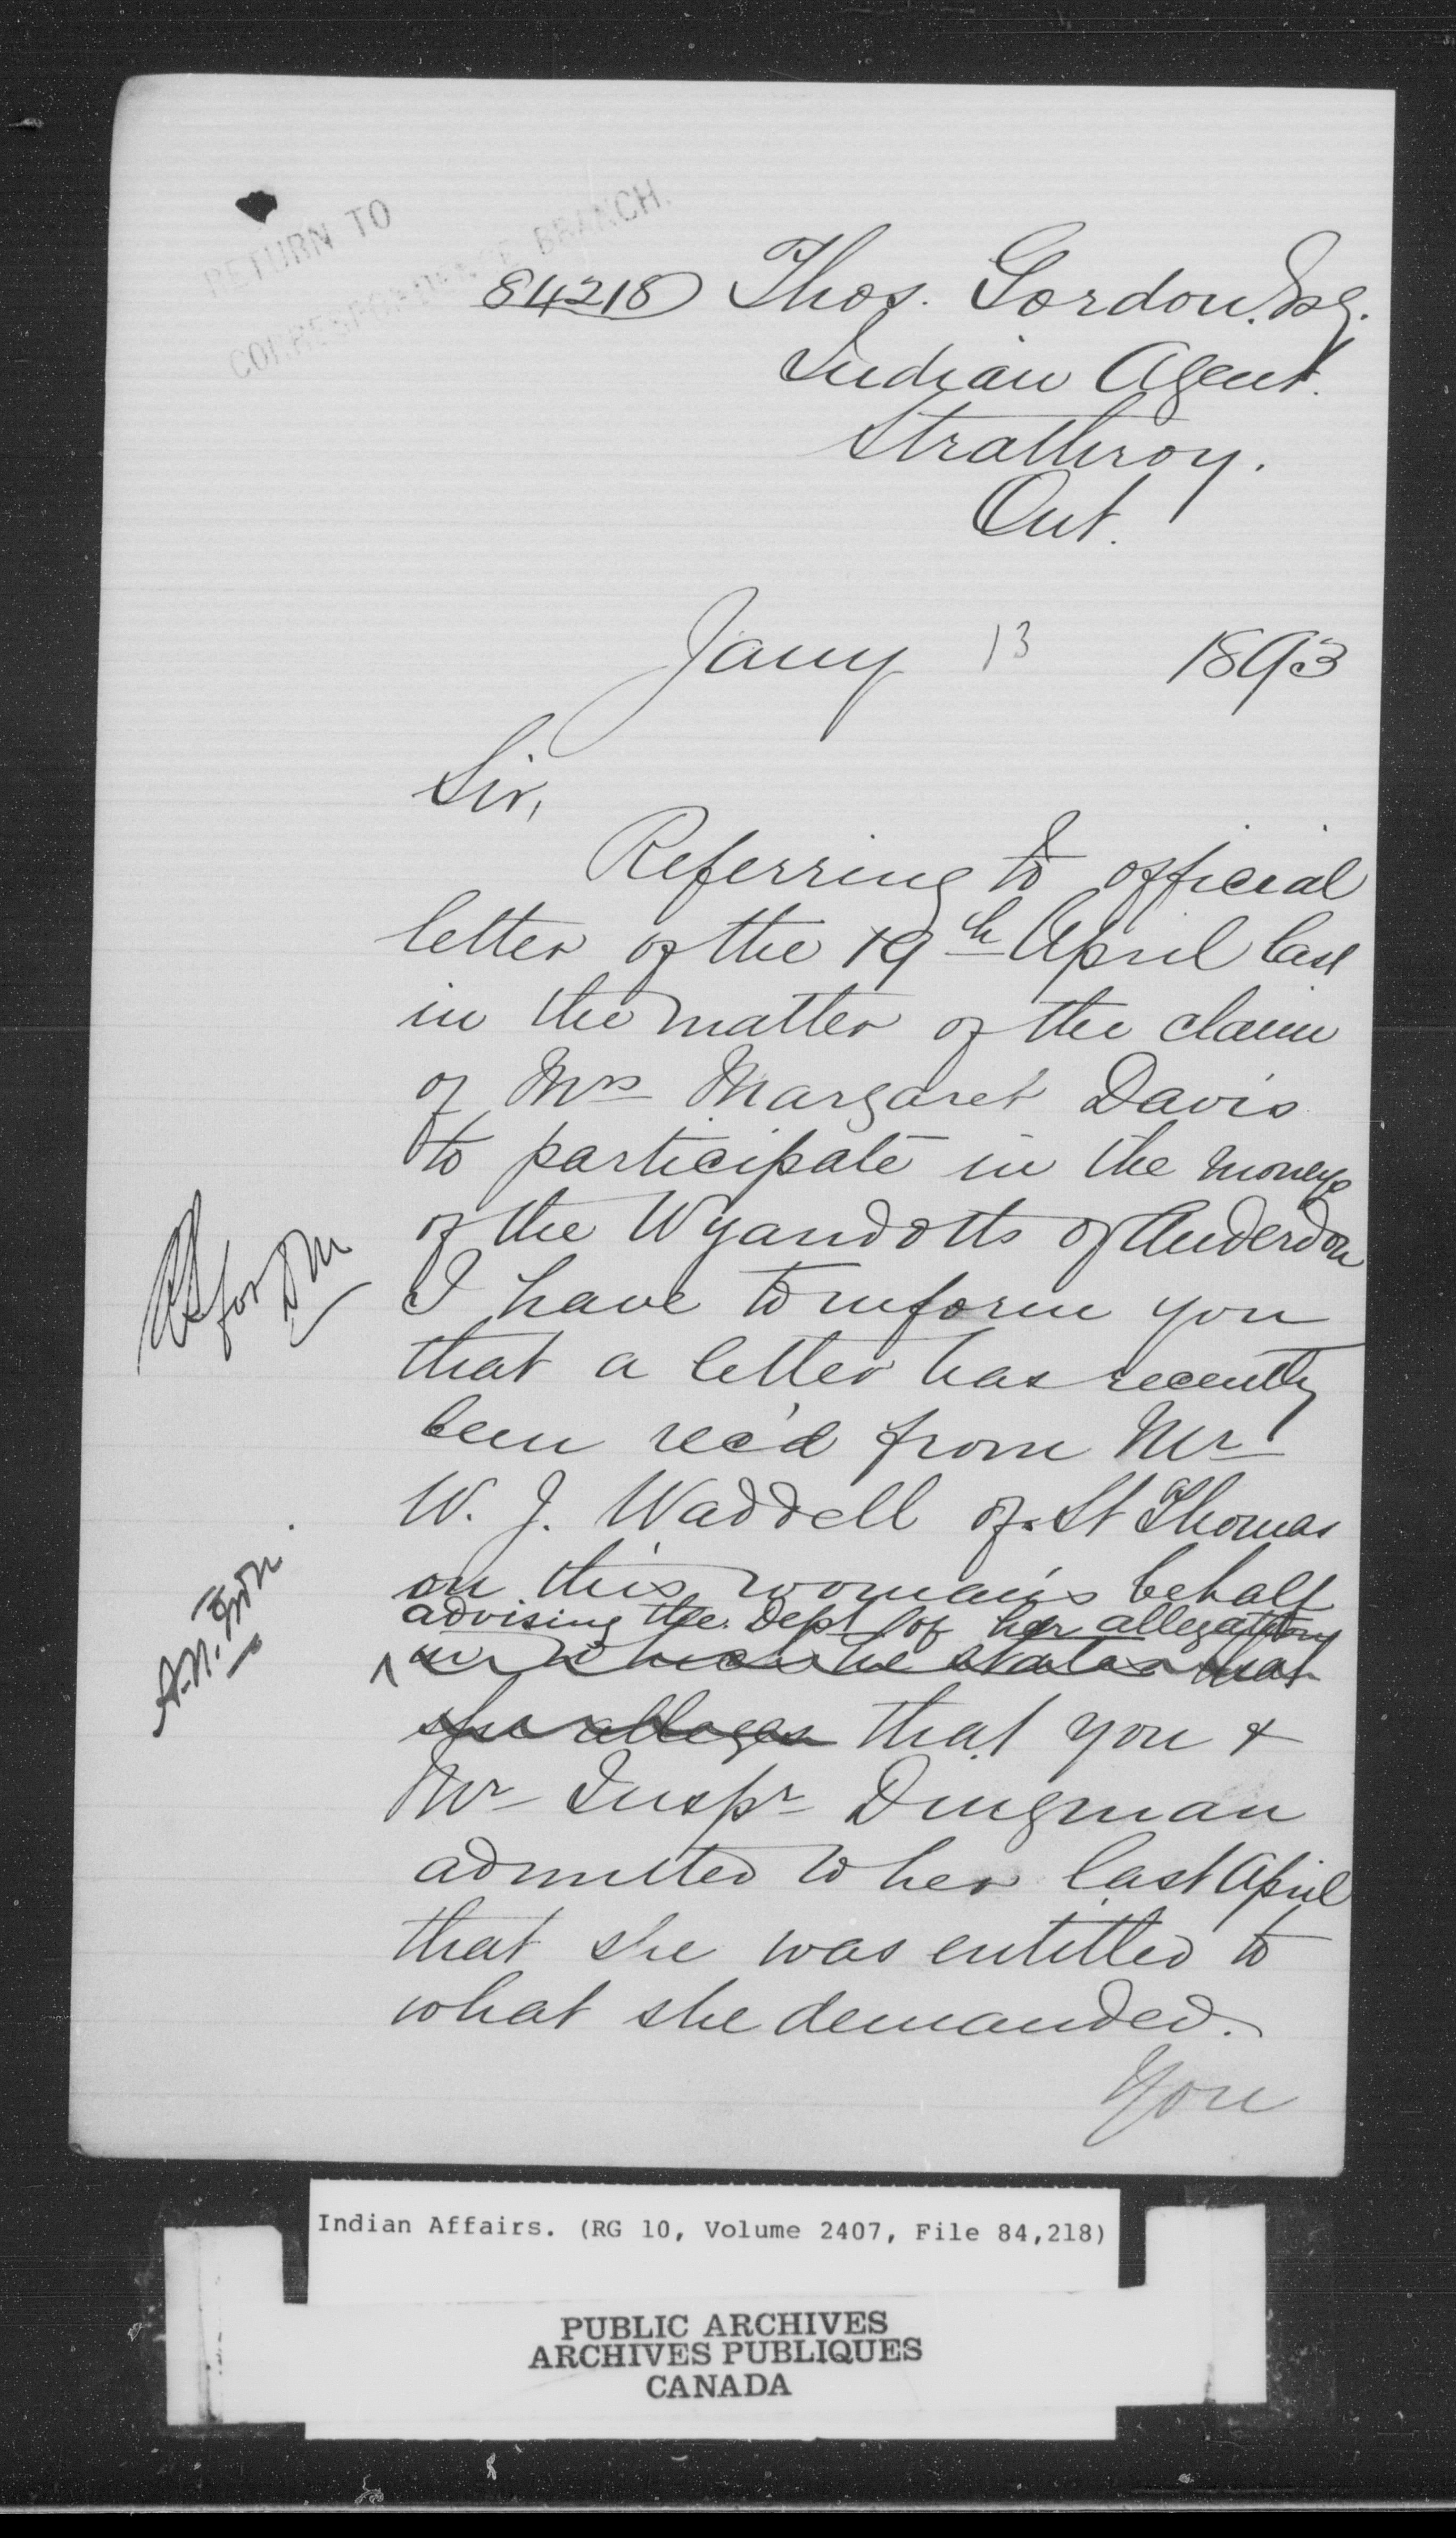 RETURN TO
CORRESPONDENCE BRANCH.
84218 Thos. Gordon. Esq.
Indian Agent.
Strathroy.
Ont.
Jany 13 1893
Sir,
Referring to official
letter of the 19th April last
in the matter of the claim
of Mrs Margaret Davis
to participate in the moneys
of the Wyandotts of Anderdon
I have to inform you
that a letter has recently
been rec'd from Mr
W. J. Waddell of St Thomas
on this woman's behalf
advising the Dept of her allegations
in which he states that
she alleges that you &
Mr Inspr Dingman
admitted to her last April
that she was entitled to
what she demanded.
You
for DM
Indian Affairs. (RG 10, Volume 2407, File 84,218)
PUBLIC ARCHIVES
ARCHIVES PUBLIQUES
CANADA